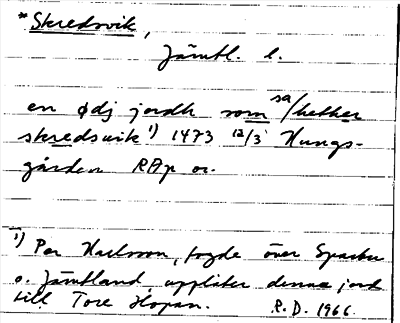 *Skredsvik,
Jämtl. l.
en ødj jordh som sa/hether
skredsuik ¹) 1473 12/3 Kungs-
gården RAp or.
¹) Per Karlsson, fogde över
o. Jämtland, upplåter denna jord
till Tore Hopan. R.D. 1966.